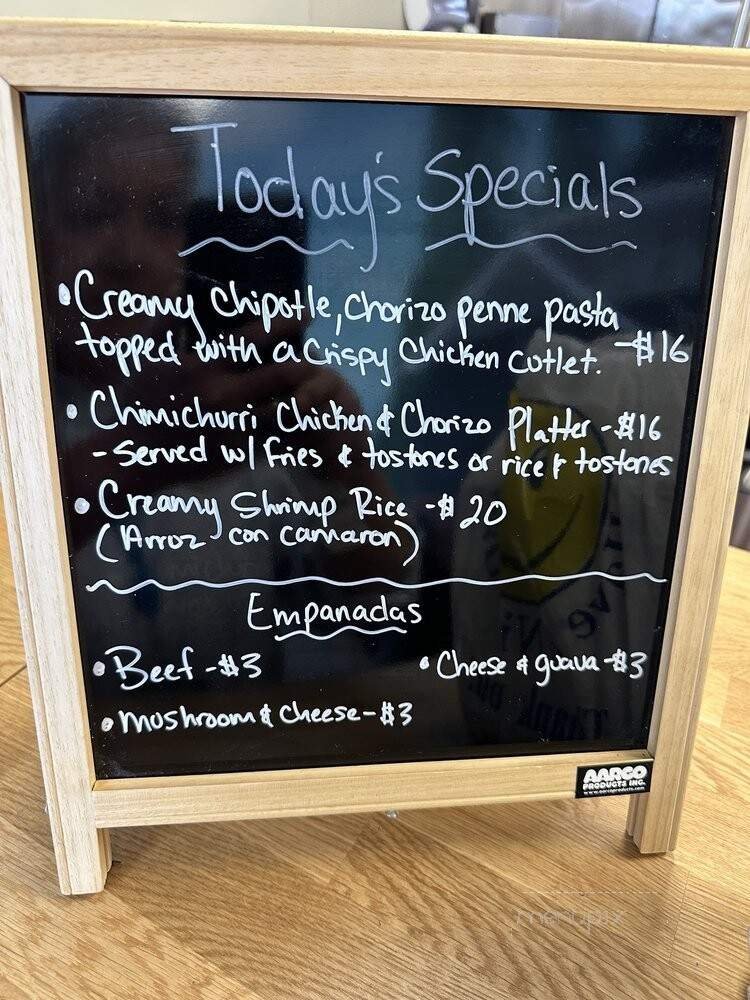 Today's Specials
• Creamy chipotle, chorizo penne pasta
topped with a Crispy Chicken Cutlet. -$16
• Chimichurri Chicken & Chorizo Platter -$16
- Served w/ fries & tostones or rice & tostones
• Creamy Shrimp Rice -$20
(Arroz con camaron)
Empanadas
• Beef -$3 • Cheese & guava -$3
• mushroom & Cheese -$3
AARCO
PRODUCTS INC.
www.aarcoproducts.com
menupix